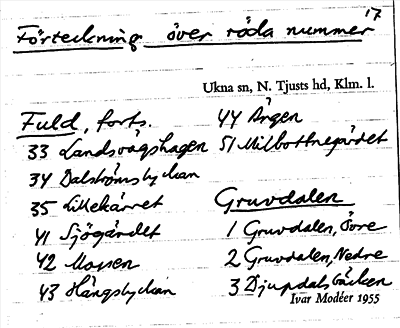 17
Förteckning över röda nummer
Ukna sn, N. Tjusts hd, Klm. l.
Fuld, forts.
33 Landsvägshagen
34 Dalströmslyckan
35 Lillekärret
41 Sjögärdet
42 Mossen
43 Hängslyckan
44 Ängen
51 Milbottnegärdet
Gruvdalen
1 Gruvdalen, Övre
2 Gruvdalen, Nedre
3 Djupdalsbäcken
Ivar Modéer 1955